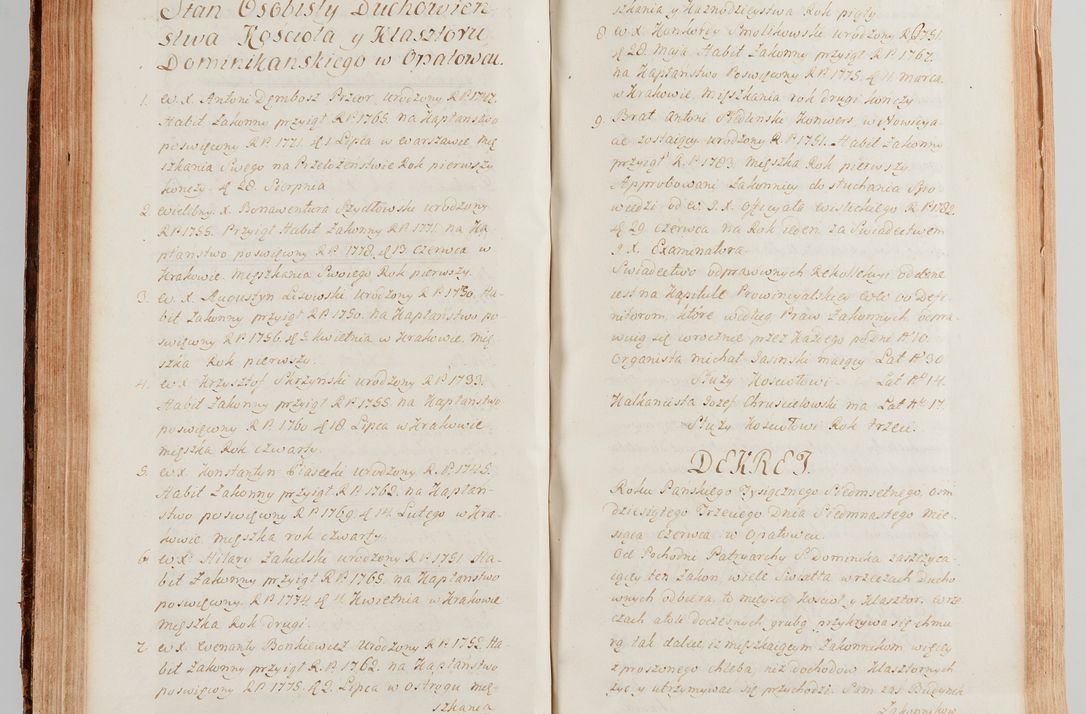 Stan Osobisty Duchowień
stwa Kościoła y Klasztoru
Dominikańskiego w Opatowcu.
1. W. X. Antoni Dembosz Przeor, urodzony R. P. 1747.
Habit Zakonny przyiął R P 1765. na Kapłanstwo
poswięcony R P. 1771. d. 1. Lipca w Warszawie, mię
szkania Swego na Przełożeństwie Rok pierwszy
kończy d. 28. Sierpnia
2. Wielibny. X. Bonawentura Szydłowski urodzony
R P. 1755. Przyiął Habit Zakonny R P. 1771. na Ka
płaństwo poswięcony R P. 1778. d. 13 Czerwca w
Krakowie. Mięszkania Swoiego Rok pierwszy.
3. W. X. Augustyn Lisowski urodzony R P. 1730. Ha-
bit Zakonny przyiął R P. 1750. na Kapłaństwo po
swięcony R P. 1756. d. 5. kwietnia w Krakowie, mię
szka Rok pierwszy.
4. W X Krzysztof Skrzyński urodzony R P. 1733.
Habit Zakonny przyiął R P 1755. na Kapłaństwo
poswięcony R P. 1760 d. 18. Lipca w Krakowie
mięszka Rok czwarty.
5. W X. Konstantyn Piasecki urodzony R. P. 1745.
Habit Zakonny przyiął R P. 1762. na Kapłań-
stwo poswięcony R P. 1769. d. 14. Lutego w Kra-
kowie mięszka rok czwarty.
6. W. X. Hilary Zakulski urodzony R P. 1751 Ha-
bit Zakonny przyiął R P 1765. na Kapłaństwo
poswięcony. R P 1774. d. 4 Kwietnia w Krakowie
mięszka Rok drugi.
7. W. X. Wenanty Bonkiewicz urodzony R P. 1752. Ha-
bit Zakonny przyiął R P. 1762. na Kapłaństwo
poswięcony R P. 1775. d. 2. Lipca w Ostrogu mię-
szkania
szkania y Kaznodzieystwa Rok piąty
8. W. X. Konkordy Smolikowski urodzony R P. 1751.
d. 28. Maja, Habit Zakonny przyiął R P. 1767.
na Kapłaństwo Poswięcony R P. 1775. d. 11 marca
w Krakowie. Mięszkania rok drugi kończy
9. Brat Antoni Konwers w Nowicya-
cie zostaiący urodzony R. P. 1751. Habit Zakonny
przyiął R. P. 1783. Mięszka Rok pierwszy.
Approbowani Zakonnicy do słuchania Spo
wiedzi od W. J. X. Officyała Wislickiego R. P. 1782.
d. 29. Czerwca na Rok ieden. za Swiadectwem
J. X. Examinatora
Swiadectwo odprawionych Rekollekcyi oddane
iest na Kapitule Prowincyalskiey WW. OO Defi-
nitorom, które według Praw Zakonnych odpra
wuią się corocznie przez Każdego po dni No 10.
Organista Michał Jasinski maiący Lat No 30
Służy Kosciołowi Lat No 14.
Kalkancista Jozef Chruscielowski ma Lat No 17.
Służy Kosciołowi Rok trzeci.
DEKRET.
Roku Pańskiego Tysiącznego Siedmsetnego, osm
dziesiątego Trzeciego Dnia Siedmnastego Mie-
siąca Czerwca w Opatowcu.
Od Pochodni Patryarchy S Dominika zaszczyca-
iący ten Zakon, wiele Swiatła w rzeczach Ducho
wnych odbiera, to mieysce Kościoł y Klasztor, w rze
czach atoli doczesnych, grubą przykrywa się chmu
rą tak dalece iż mięszkaiącym Zakonnikom więcey
z proszonego chleba, niż dochodow klasztornych
żyć y utrzymywać się przychodzi. Sam zaś Budynek
Zakonnikow